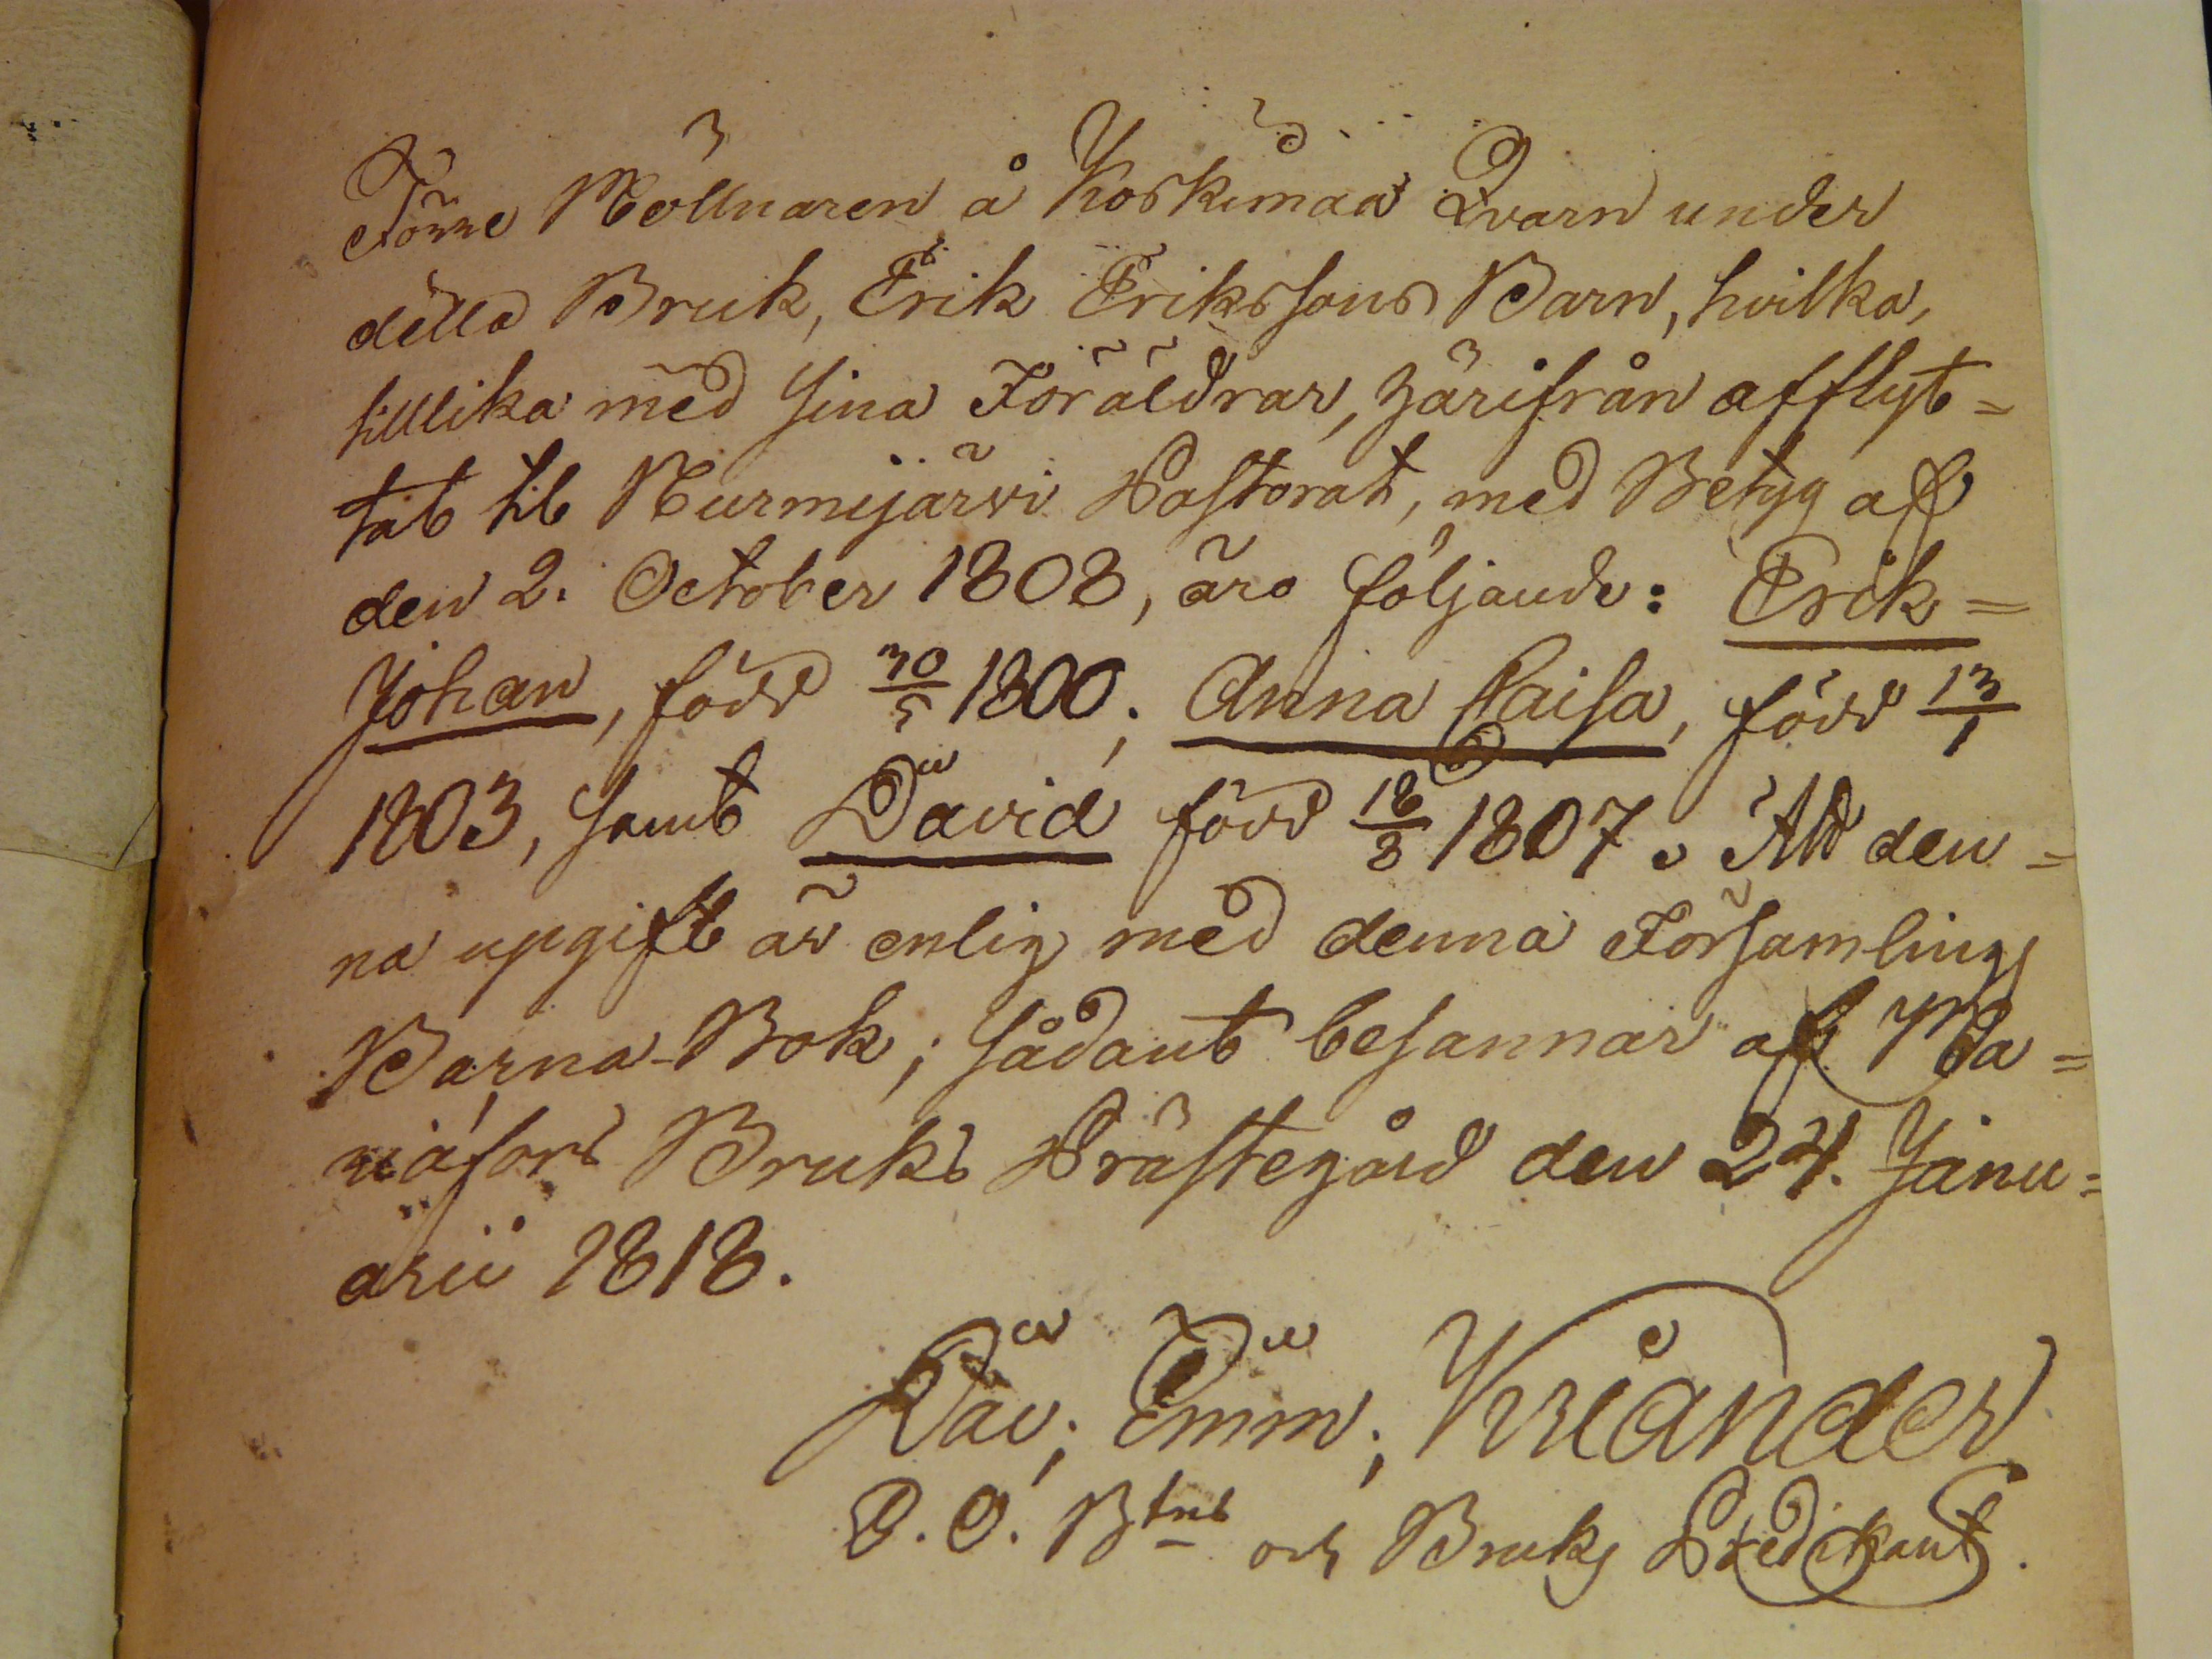 Förre Möllnaren å Koskimaa Qvarn under
detta Bruk, Erik Erikssons Barn, hvilka,
tillika med sina Föräldrar, härifrån afflyt=
tat til Nurmijärvi Pastorat, med Betyg af
den 2. October 1808, äro följande: Erik=
Johan, född 30/5 1800; Anna Caisa, född 13/1
1803, samt David född 18/3 1807. Att den=
na upgift är enlig med denna Församlings
Barna-Bok; sådant besannar af Ma=
riæfors Bruks Prästegård den 24. Janu=
arii 1818.
Dav; Emm; Kriander
P. O. Btns och Bruks Predikant.